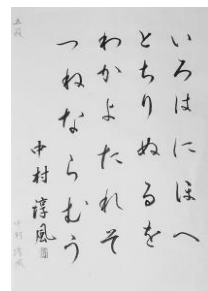 いろはにほへ
とちりぬるを
わかよたれそ
つねならむう
中村淳風
五段